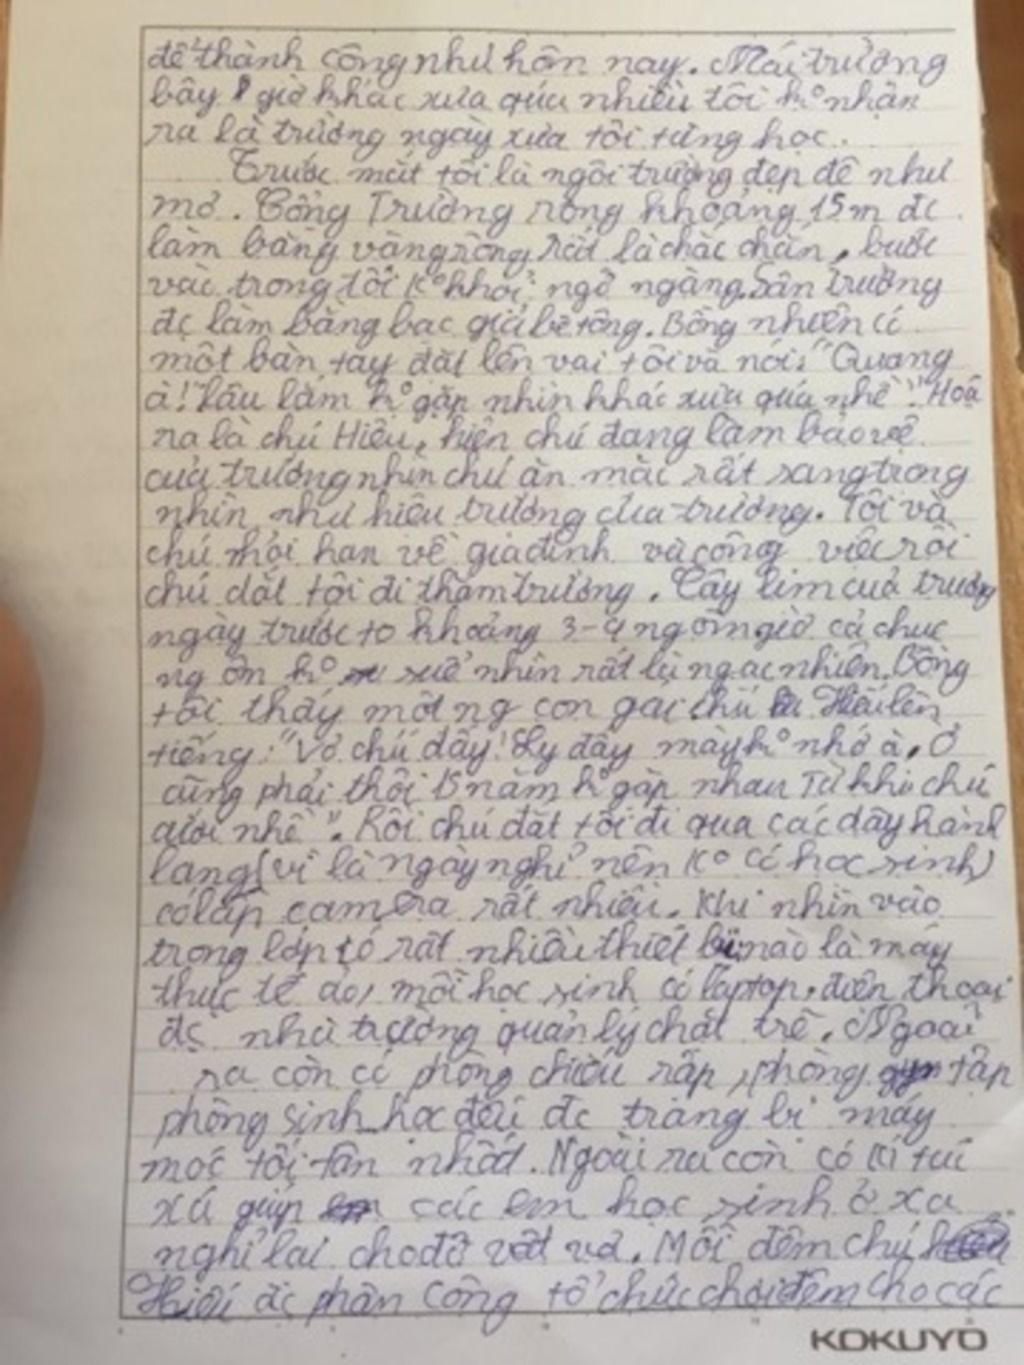 để thành công như hôn nay. Mái trường
bây giờ khác xưa quá nhiều tôi ko nhận
ra là trường ngày xưa tôi từng học.
Trước mắt tôi là ngôi trường đẹp đẽ như
mơ. Cổng Trường rộng khoảng 15m đc
làm bằng vàng ròng rất là chắc chắn, bước
vào trong tôi ko khỏi ngỡ ngàng. Sân trường
đc làm bằng bạc giả bê tông. Bỗng nhiên có
một bàn tay đặt lên vai tôi và nói: "Quang
à! lâu lắm ko gặp nhìn khác xưa quá nhề". Hoá
ra là chú Hiếu, hiện chú đang làm bảo vệ
của trường nhìn chú ăn mặc rất sang trọng
nhìn như hiệu trưởng của trường. Tôi và
chú hỏi han về gia đình và công việc rồi
chú dắt tôi đi thăm trường. Cây lim của trường
ngày trước to khoảng 3-4 ng ôm giờ cả chục
ng ôm ko xuể nhìn rất là ngạc nhiên. Bỗng
tôi thấy một ng con gái chú Hiếu lên
tiếng: "Vợ chú đấy! Ly đấy mày ko nhớ à, Ờ
cũng phải thôi 15 năm ko gặp nhau từ khi chú
cưới nhề". Rồi chú dắt tôi đi qua các dãy hành
lang (vì là ngày nghỉ nên ko có học sinh)
có lắp camera rất nhiều. Khi nhìn vào
trong lớp có rất nhiều thiết bị nào là máy
thực tế ảo, mỗi học sinh có laptop, điện thoại
đc nhà trường quản lý chặt trẽ. Ngoài
ra còn có phòng chiếu rấp, phòng tập
phòng sinh học đều đc trang bị máy
móc tối tân nhất. Ngoài ra còn có kí túc
xá giúp các em học sinh ở xa
nghỉ lại cho đỡ vất vả. Mỗi đêm chú
Hiếu đc phân công tổ chức chơi đêm cho các
KOKUYO